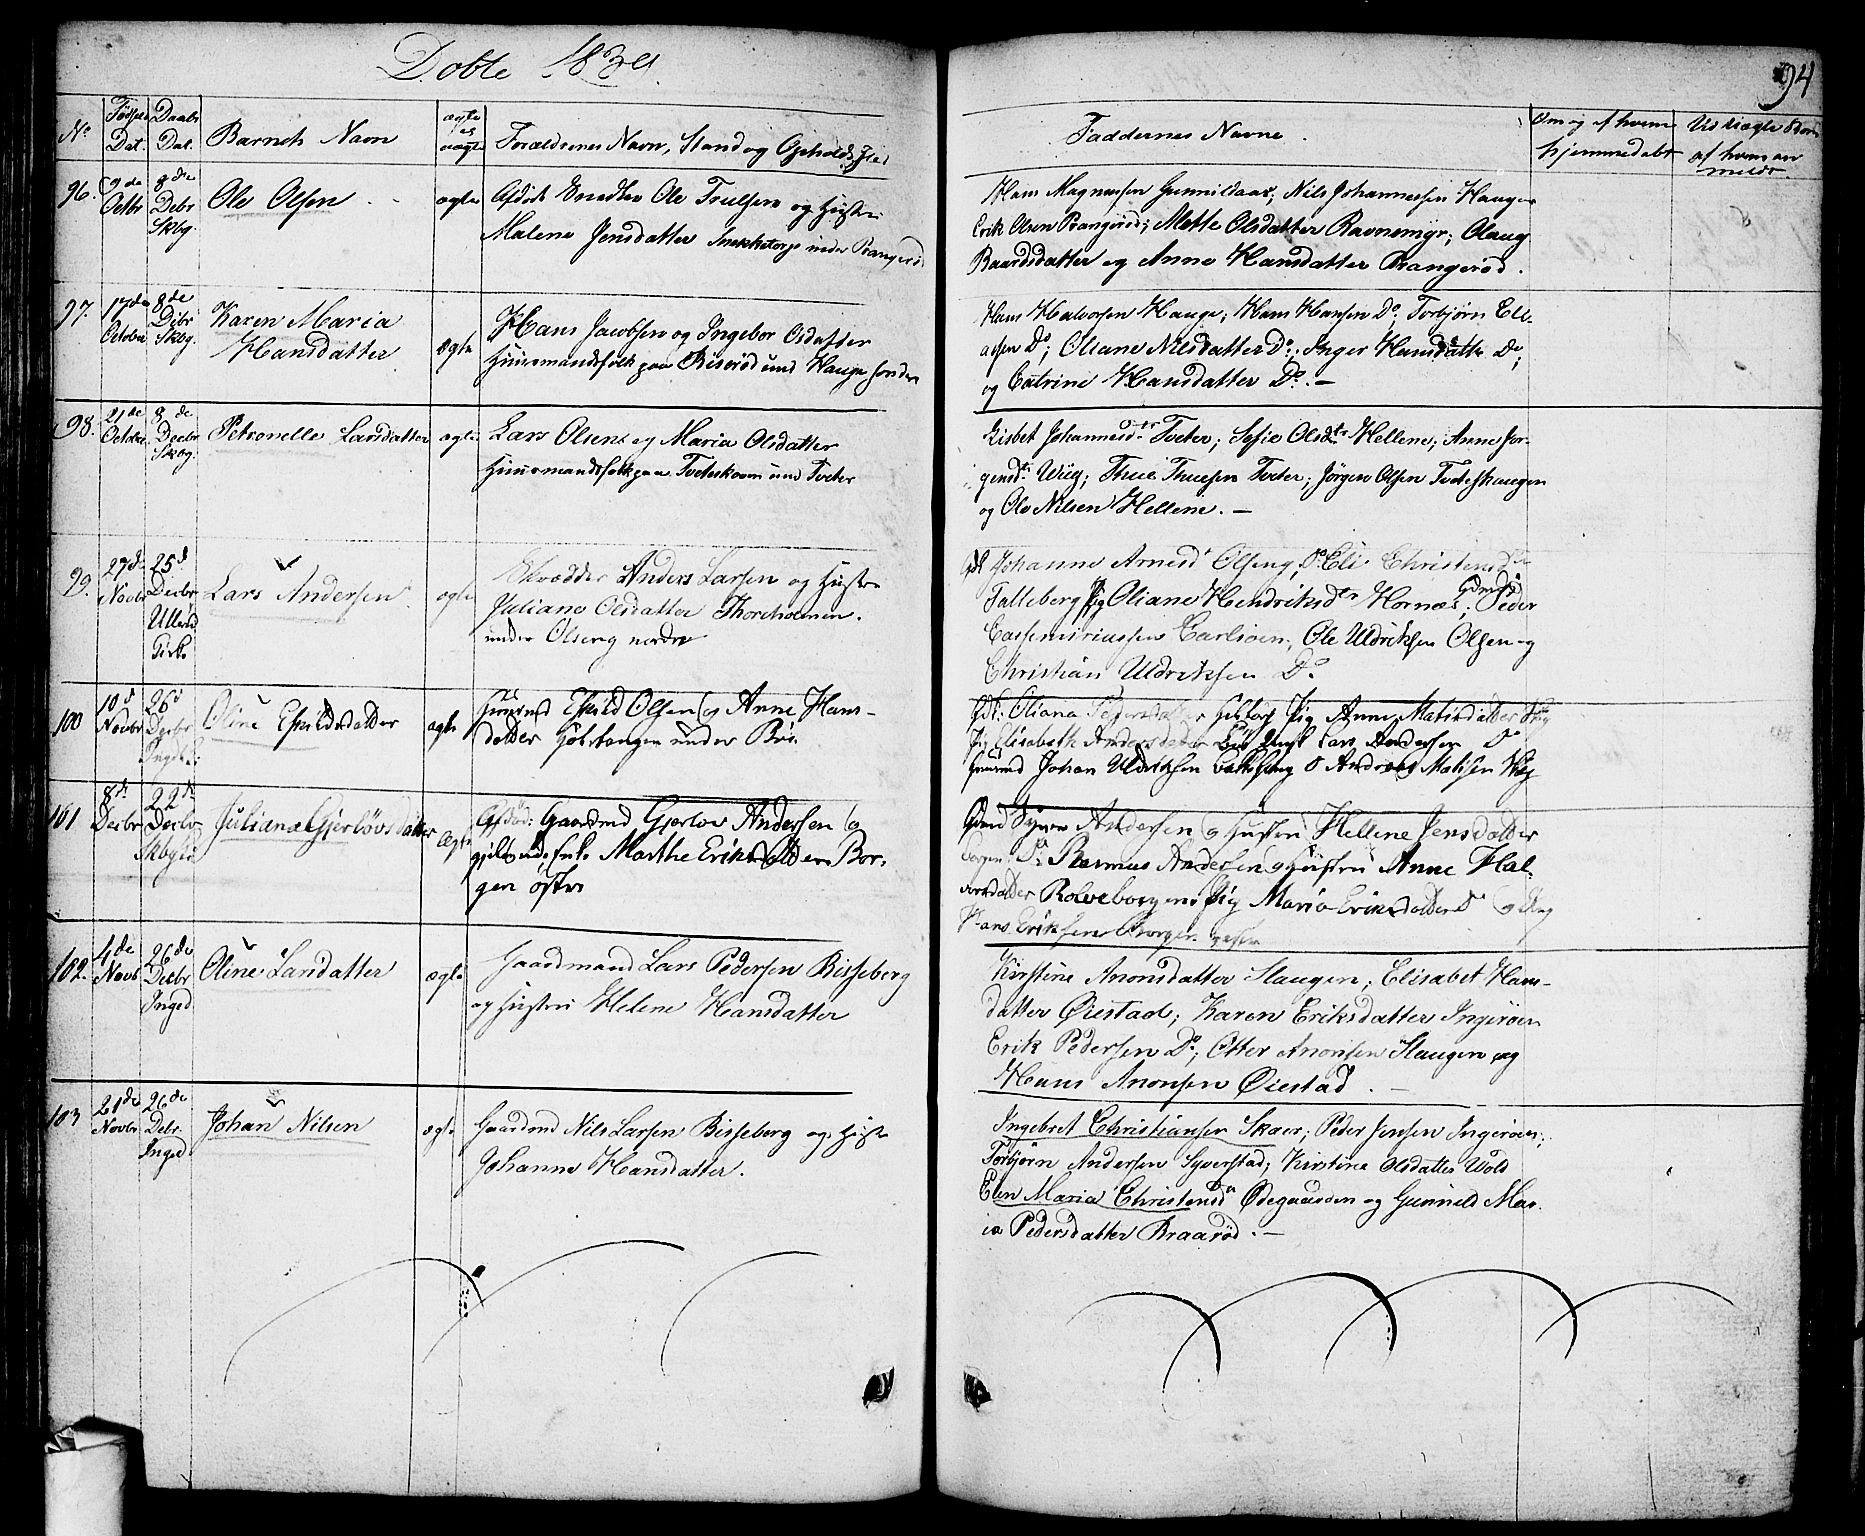 Døbte 1839
94
No Fødsels Dat. Daabs Dat. Barnets Navn ægte og uægte Forældrenes Navn, Stand og Opholds Sted
Faddernes Navne. Om og af hvem hjemmedøbt Ved uægte Børn af hvem anmeldt
96. 9de Octbr 8de Debr Skbg. Ole Olsen ægte Afdøde Ole Trulsen og Hustru
Malene Jensdatter under Prangerød
Hans Magnussen Gunnildaas; Nils Johannessen Hauger
Erik Olsen Prangerød; Mette Olsdatter Ravnemyr; Olaug
Baardsdatter og Anne Hansdatter Prangerød.
97. 17de October 8de Debr Skbg. Karen Maria
Hansdatter ægte Hans Jacobsen og Ingebor Olsdatter
Huusmandsfolk paa Biserød und Hauge søndre
Hans Halvorsen Hauge; Hans Hansen Do; Torbjørn Ell-
assen Do; Oliane Nilsdatter Do; Inger Hansdatter Do;
og Catrine Hansdatter Do. —
98. 21de October 8de Decbr Skbg. Petronelle Larsdatter ægte Lars Olsen og Maria Olsdatter
Huusmandsfolk paa Tveteskoven und Tveter
Lisbet Johannesdtr Tveter; Sofie Olsdtr Hellene; Anne Jør-
gensdtr Wiig; Thue Thuesen Tveter; Jørgen Olsen Tveteshaugen
og Ole Nilsen Hellene. —
99. 27de Novbr 25d Decbr Ullerød Kirke Lars Andersen ægte Skrædder Anders Larsen og Hustru
Juliane Olsdatter Thorsholmen.
under Olseng nordre
Johanne Arnesdt Olseng, Do Eli Christensdtr
Falleberg Pig Oliane Hendriksdtr Hornæs; Gdmd Peder
Cassemiriussen Carlsøen, Ole Uldriksen Olsen og
Christian Uldriksen Do
100 10d Novbr 26d Decbr Oline Eskildsdatter ægte Huusmd Eskild Olsen og Anne Hans-
datter Golstangen under Bøe
Oliana Pedersdatter Pig Anne Matisdatter
Pig Elisabeth Andersdatter Lars Andersen Do
Huusmd Johan Uldriksen Andreas Matisen Wiig
101 8de Decbr 22de Decbr Juliana Gjerløvsdatter ægte Afdød: Gaardmd Gjerløv Andersen og
Enke Marthe Eriksdatter Bor-
gen østre
Gdmd Andersen og Hustru Hellene Jensdatter
Borgen, Do Rasmus Andersen og Hustru Anne Hal-
vorsdatter Rolveborgen; Pig Maria Eriksdatter Do og Ung
Hans Eriksen Borgen
102. 4de Novbr 26de Decbr Inged Oline Larsdatter ægte Gaardmand Lars Pedersen Bisseberg
og Hustru Helene Hansdatter
Kirstine Anonsdatter Slaugen; Elisabet Hans-
datter Øiestad; Karen Eriksdatter Ingerøen
Erik Pedersen Do; Otter Anonsen Slaugen og
Hans Anonsen Øiestad. —
103 21de Novbr 26de Debr. Inged Johan Nilsen ægte Gaardmd Nils Larsen Bisseberg og Hustr
Johanne Hansdatter.
Ingebret Christiansen Skaer; Peder Jensen Ingerøen;
Torbjørn Andersen Syverstad; Kirstine Olsdatter Wold
Elen Maria Christensdtr Ødegaarden og Gunnild Mar-
ia Pedersdatter Braarød. —